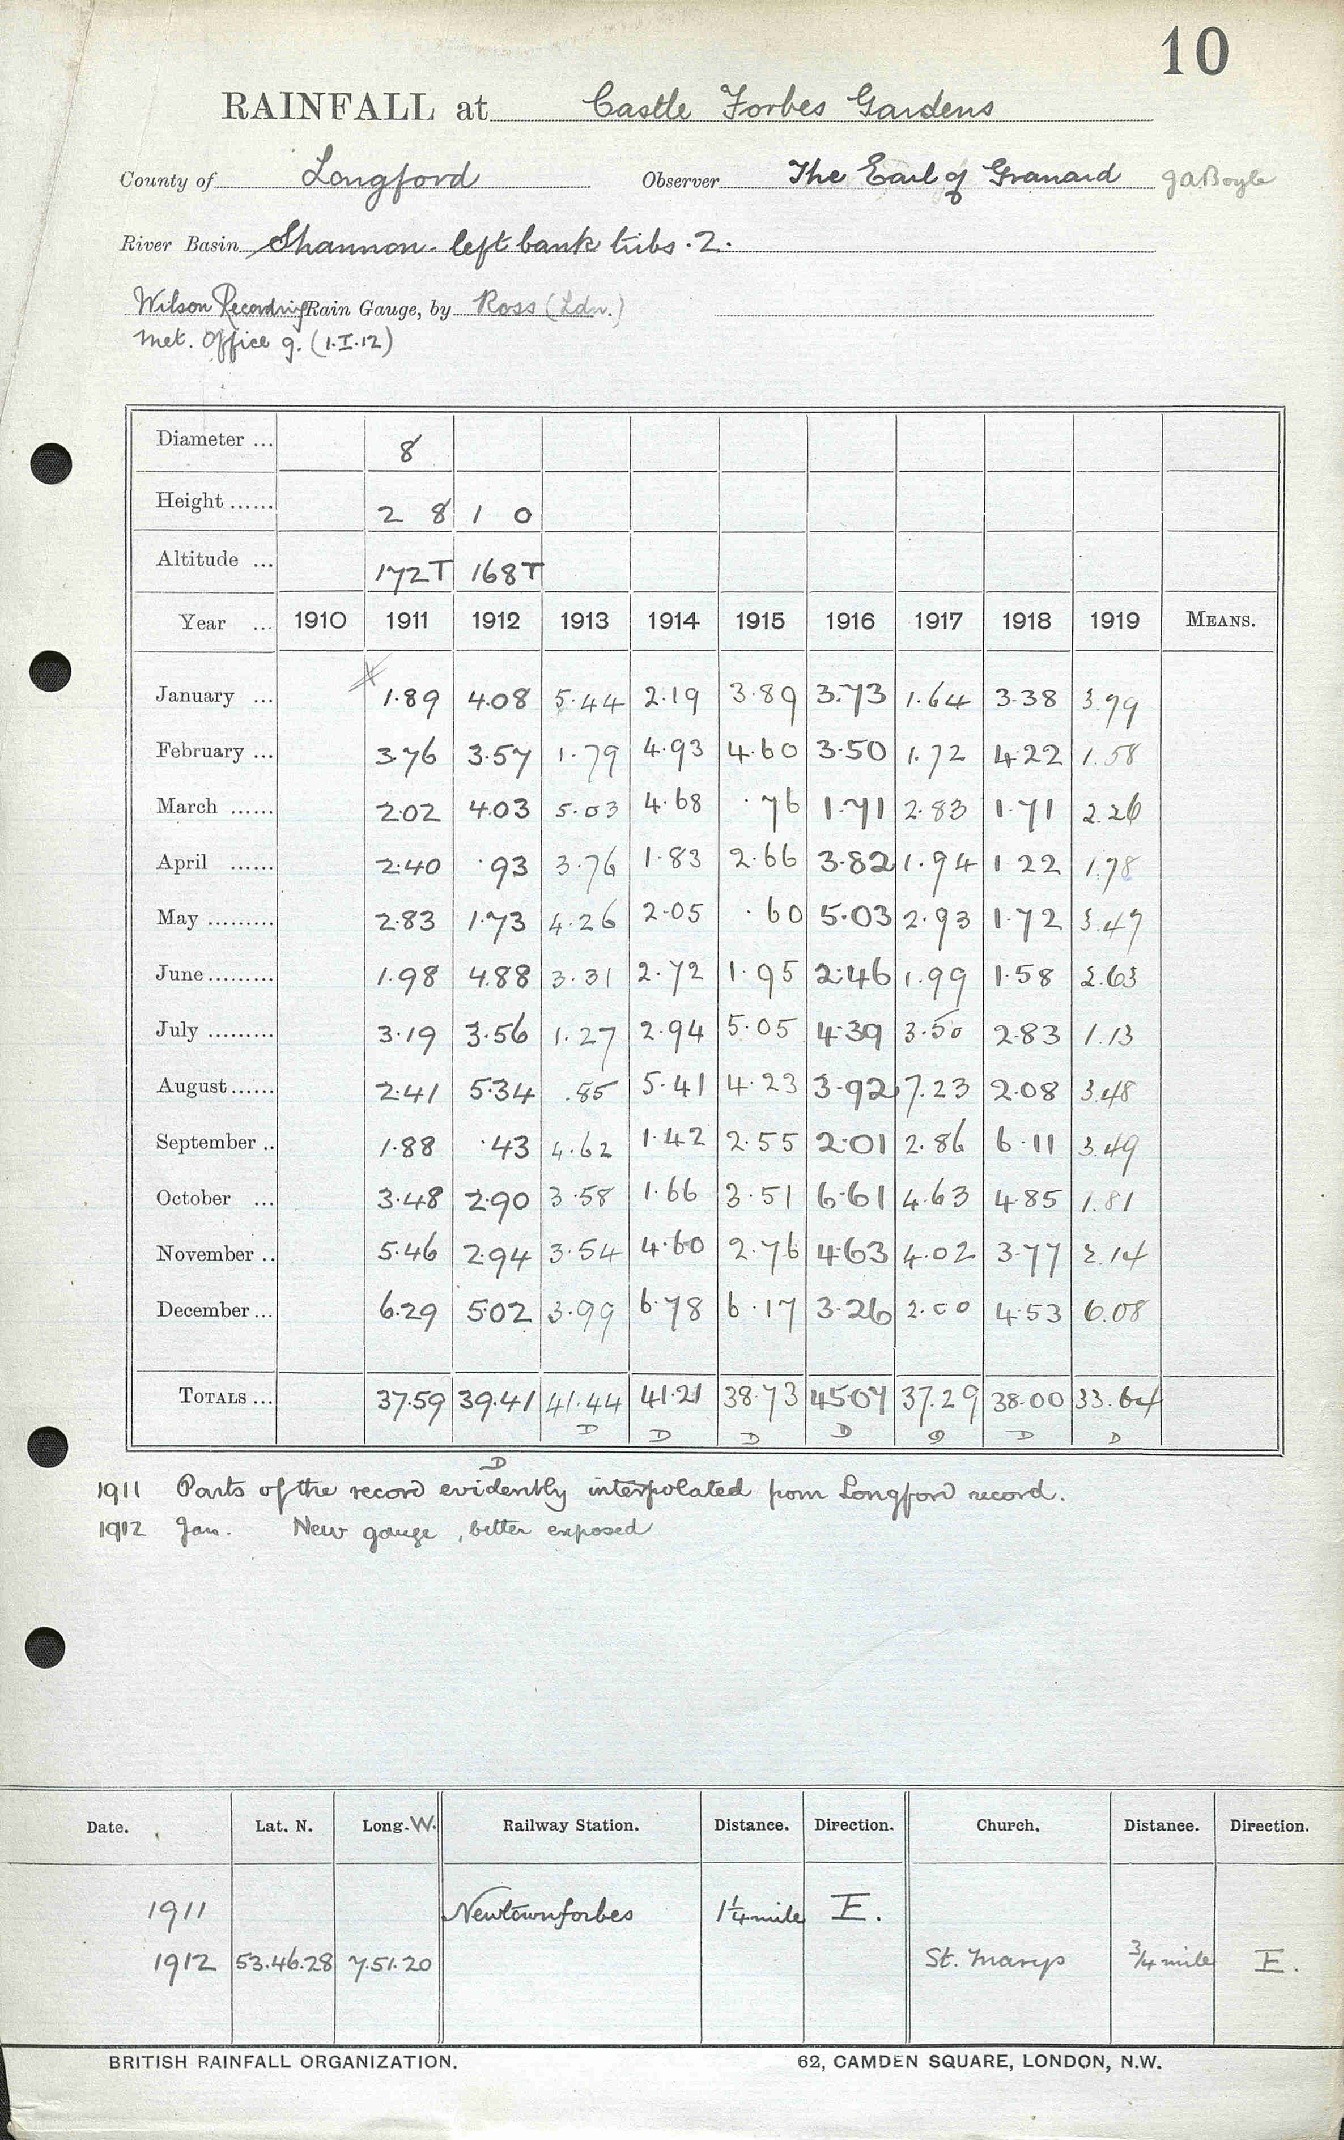 10
RAINFALL at Castle Forbes Gardens
County of Longford Observer The Earl of Granard J A Boyle
River Basin Shannon - left bank tribs . 2 .
Wilson Recording Rain Gauge, by Ross (Ldn.)
Met. Office g. (1.I.12)
Diameter ... 8
Height ...... 2 8 1 0
Altitude ... 172T 168T
Year ... 1910 1911 1912 1913 1914 1915 1916 1917 1918 1919 MEANS.
January ... 1.89 4.08 5.44 2.19 3.89 3.73 1.64 3.38 3.79
February ... 3.76 3.57 1.79 4.93 4.60 3.50 1.72 4.22 1.58
March ...... 2.02 4.03 5.03 4.68 .76 1.71 2.83 1.71 2.26
April ...... 2.40 .93 3.76 1.83 2.66 3.82 1.94 1 22 1.78
May ......... 2.83 1.73 4.26 2.05 .60 5.03 2.93 1.72 3.47
June ......... 1.98 4.88 3.31 2.72 1.95 2.46 1.99 1.58 2.63
July ......... 3.19 3.56 1.27 2.94 5.05 4.39 3.50 2.83 1.13
August ...... 2.41 5.34 .85 5.41 4.23 3.92 7.23 2.08 3.48
September .. 1.88 .43 4.62 1.42 2.55 2.01 2.86 6.11 3.49
October ... 3.48 2.90 3.58 1.66 3.51 6.61 4.63 4.85 1.81
November .. 5.46 2.94 3.54 4.60 2.76 4.63 4.02 3.77 2.14
December ... 6.29 5.02 3.99 6.78 6.17 3.26 2.00 4.53 6.08
TOTALS ... 37.59 39.41 41.44 41.21 38.73 45.07 37.29 38.00 33.64
D D D D D D D D
1911 Parts of the record evidently interpolated from Longford record.
1912 Jan. New gauge, better exposed
Date. Lat. N. Long. W. Railway Station. Distance. Direction. Church. Distance. Direction.
1911 Newtownforbes 1¼ mile E.
1912 53.46.28 7.51.20 St. Marys ¾ mile E.
BRITISH RAINFALL ORGANIZATION. 62, CAMDEN SQUARE, LONDON, N.W.